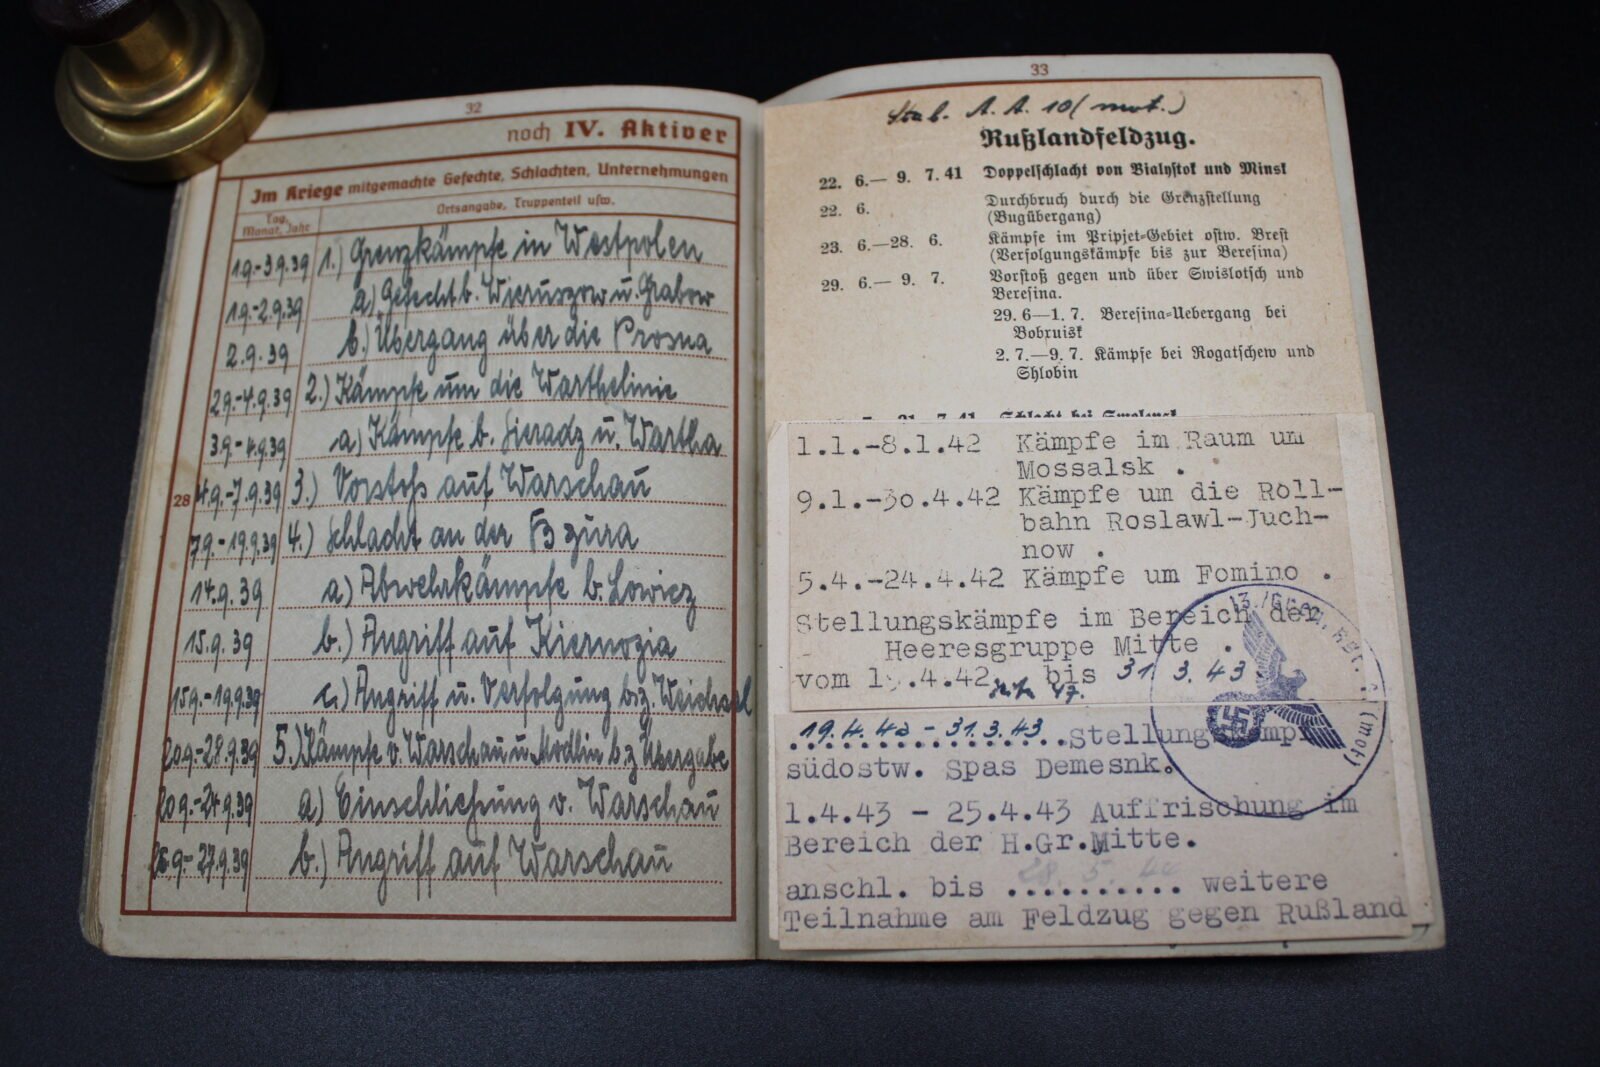 32
noch IV. Aktiver
Im Kriege mitgemachte Gefechte, Schlachten, Unternehmungen
Tag, Monat, Jahr
Ortsangabe, Truppenteil usw.
1.9.-3.9.39 1.) Grenzkämpfe in Westpolen
1.9.-2.9.39 a) Gefecht b. Wieruszow u. Grabow
2.9.39 b.) Übergang über die Prosna
2.9.-4.9.39 2.) Kämpfe um die Warthelinie
3.9.-4.9.39 a) Kämpfe b. Sieradz u. Wartha
28
4.9.-7.9.39 3.) Vorstoß auf Warschau
7.9.-19.9.39 4.) Schlacht an der Bzura
14.9.39 a) Abwehrkämpfe b. Lowicz
15.9.39 b.) Angriff auf Kiernozia
15.9.-19.9.39 c.) Angriff u. Verfolgung b.z. Weichsel
20.9.-28.9.39 5.) Kämpfe v. Warschau u. Modlin b.z. Übergabe
20.9.-24.9.39 a) Einschließung v. Warschau
26.9.-27.9.39 b.) Angriff auf Warschau
33
Stab. A. A. 10 (mot.)
Rußlandfeldzug.
22. 6.— 9. 7. 41 Doppelschlacht von Bialystok und Minsk
22. 6. Durchbruch durch die Grenzstellung
(Bugübergang)
23. 6.—28. 6. Kämpfe im Pripjet-Gebiet ostw. Brest
(Verfolgungskämpfe bis zur Beresina)
29. 6.— 9. 7. Vorstoß gegen und über Swislotsch und
Beresina.
29. 6—1. 7. Beresina-Uebergang bei
Bobruisk
2. 7.—9. 7. Kämpfe bei Rogatschew und
Shlobin
7. 41 Schlacht bei Smolensk
1.1.-8.1.42 Kämpfe im Raum um
Mossalsk .
9.1.-30.4.42 Kämpfe um die Roll-
bahn Roslawl-Juch-
now .
5.4.-24.4.42 Kämpfe um Fomino .
Stellungskämpfe im Bereich der
Heeresgruppe Mitte .
vom 19.4.42 bis 31.3.43
19.4.42 - 31.3.43 Stellungskämpfe
südostw. Spas Demesnk.
1.4.43 - 25.4.43 Auffrischung im
Bereich der H.Gr.Mitte.
anschl. bis .......... weitere
Teilnahme am Feldzug gegen Rußland